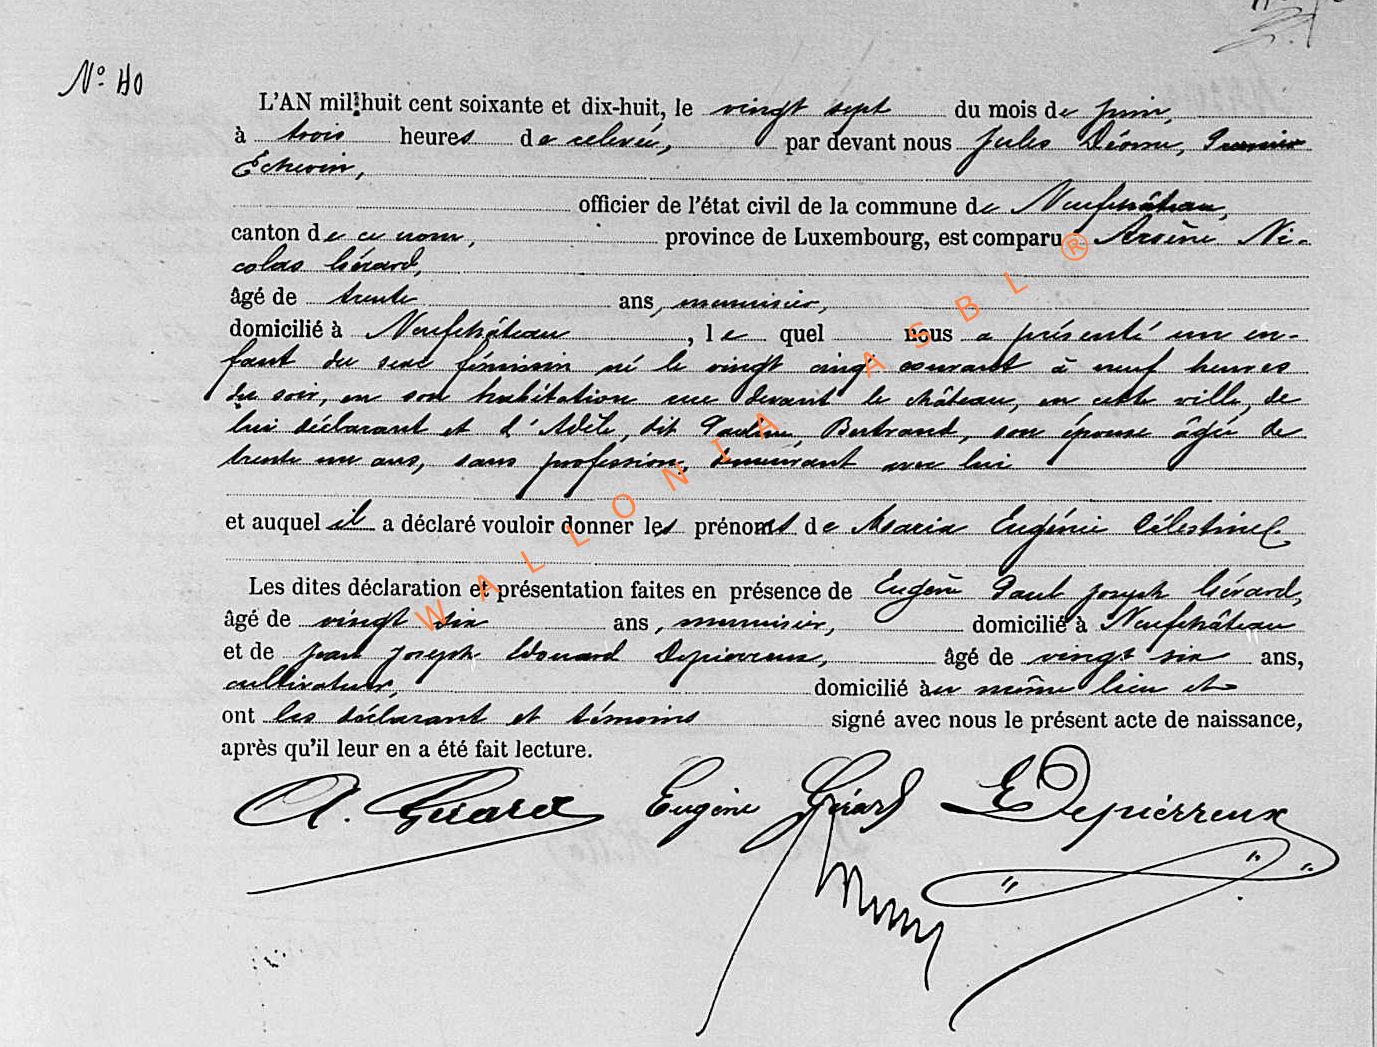 N° 40
L'AN mil huit cent soixante et dix-huit, le vingt sept du mois de juin,
à trois heures de relevée, par devant nous Jules Déome, Premier
Echevin,
officier de l'état civil de la commune de Neufchâteau,
canton de ce nom, province de Luxembourg, est comparu Arsène Ni-
colas Gérard,
âgé de trente ans, menuisier,
domicilié à Neufchâteau, le quel nous a présenté un en-
fant du sexe féminin né le vingt cinq courant à neuf heures
du soir, en son habitation rue devant le château, en cette ville, de
lui déclarant et d'Adèle, dit Pauline, Bertrand, son épouse âgée de
trente un ans, sans profession, demeurant avec lui
et auquel il a déclaré vouloir donner les prénoms de Maria Eugénie Célestine.
Les dites déclaration et présentation faites en présence de Eugène Paul Joseph Gérard,
âgé de vingt six ans, menuisier, domicilié à Neufchâteau
et de Jean Joseph Edouard Depierreux, âgé de vingt six ans,
cultivateur, domicilié au même lieu et
ont les déclarant et témoins signé avec nous le présent acte de naissance,
après qu'il leur en a été fait lecture.
A. Gérard Eugène Gérard E Depierreux
WALLONIA ASBL ®